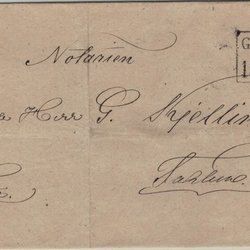 Notarien
Herr G. Kjellin
Fahlun.
G
1